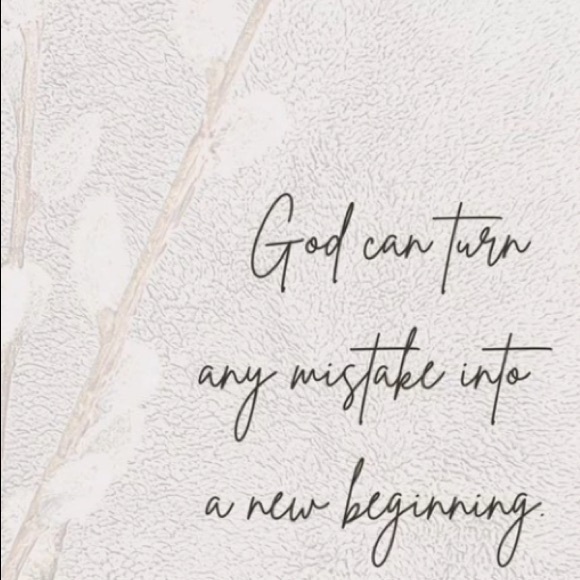 God can turn
any mistake into
a new beginning.